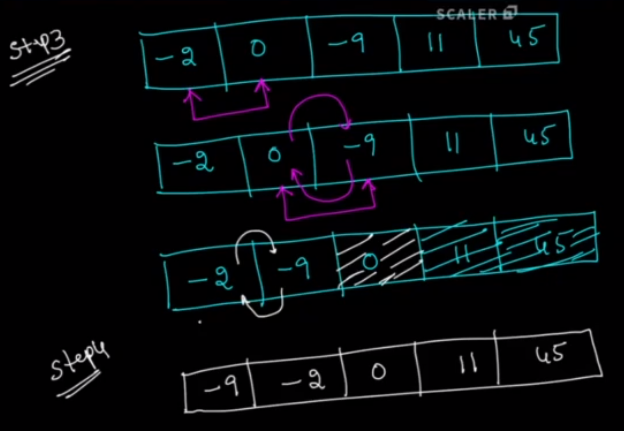 SCALER
Step3
-2 0 -9 11 45
-2 0 -9 11 45
-2 -9 0 11 45
Step4
-9 -2 0 11 45